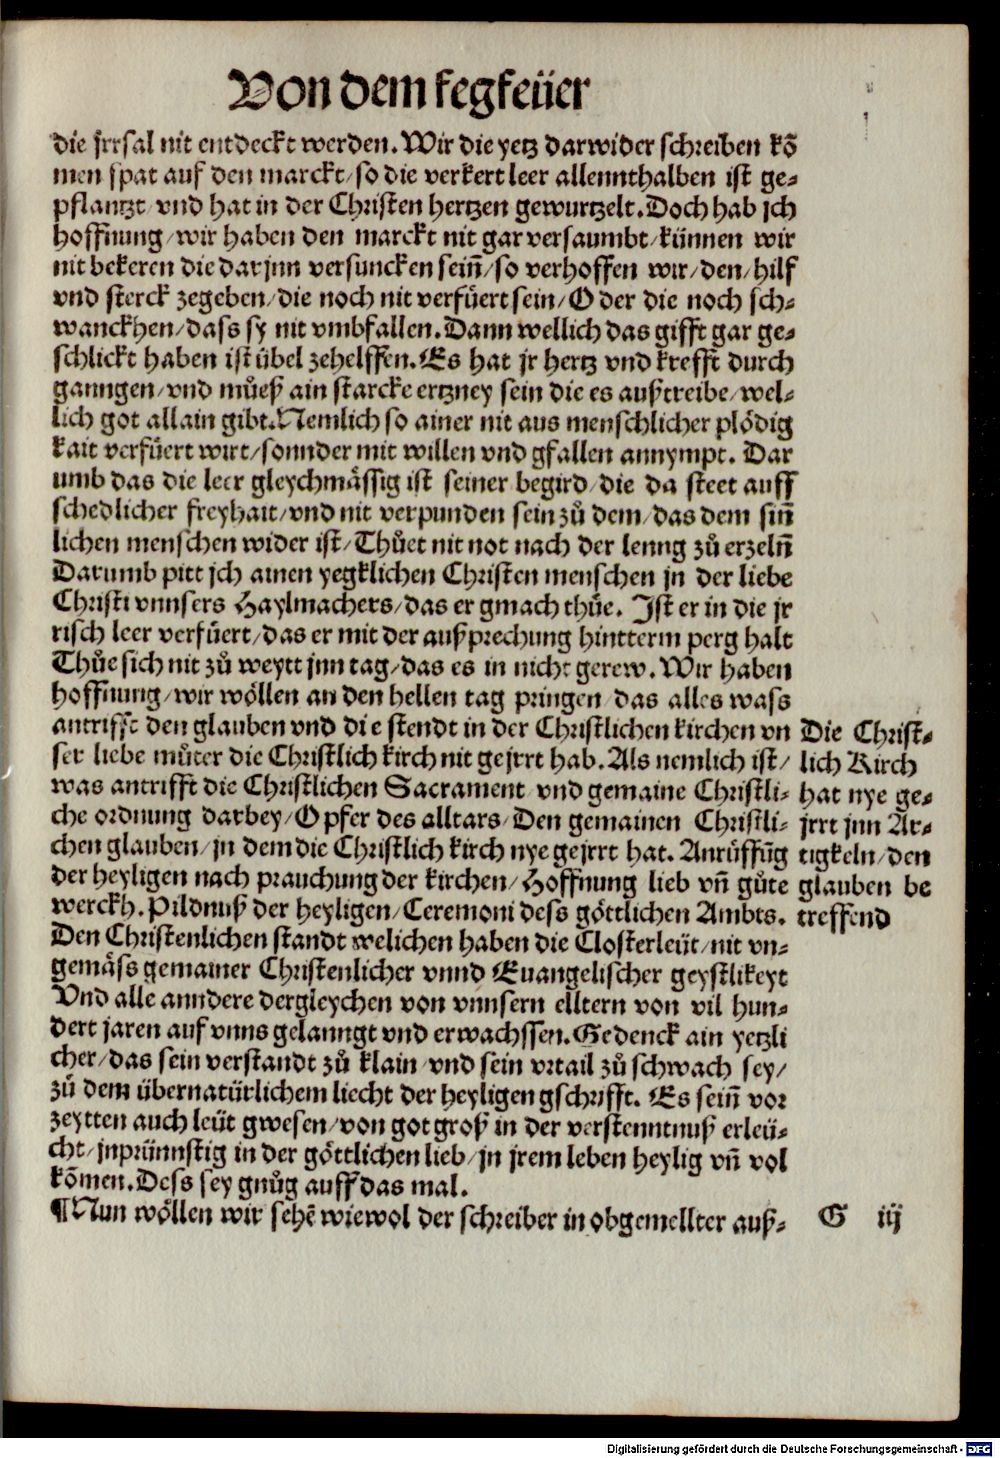 Von dem fegfeüer
die jrrsal nit entdeckt werden. Wir die yetz darwider schreiben kō
men spat auf den marckt/ so die verkert leer allennthalben ist ge-
pflantzt/ vnd hat in der Christen hertzen gewurtzelt. Doch hab jch
hoffnung/ wir haben den marckt nit gar versaumbt/ künnen wir
nit bekeren die darjnn versuncken sein̄/ so verhoffen wir/ den/ hilf
vnd sterck zegeben/ die noch nit verfüert sein/ Oder die noch sch-
wanckhen/ dass sy nit vmbfallen. Dann wellich das gifft gar ge-
schlickt haben ist übel zehelffen. Es hat jr hertz vnd krefft durch
ganngen/ vnd můeß ain starcke ertzney sein die es außtreibe/ wel-
lich got allain gibt. Nemlich so ainer nit aus menschlicher plödig
kait verfüert wirt/ sonnder mit willen vnd gfallen annympt. Dar
umb das die leer gleychmässig ist seiner begird/ die da steet auff
schedlicher freyhait/ vnd nit verpunden sein zů dem/ das dem sin̄
lichen menschen wider ist/ Thůet nit not nach der lenng zů erzeln̄
Darumb pitt jch ainen yegklichen Christen menschen jn der liebe
Christi vnnsers Haylmachers/ das er gmach thůe. Jst er in die jr
risch leer verfüert/ das er mit der außprechung hintterm perg halt
Thůe sich nit zů weytt jnn tag/ das es in nicht gerew. Wir haben
hoffnung/ wir wöllen an den hellen tag pringen das alles wass
antrifft den glauben vnd die stendt in der Christlichen kirchen vn
ser liebe můter die Christlich kirch nit gejrrt hab. Als nemlich ist/
was antrifft die Christlichen Sacrament vnd gemaine Christli-
che ordnung darbey/ Opfer des alltars/ Den gemainen Christli-
chen glauben/ jn dem die Christlich kirch nye gejrrt hat. Anrüffūg
der heyligen nach prauchung der kirchen/ Hoffnung lieb vn̄ gůte
werckh. Pildnuß der heyligen/ Ceremoni dess göttlichen Ambts.
Den Christenlichen standt welichen haben die Closterleüt/ nit vn-
gemäss gemainer Christenlicher vnnd Euangelischer geystlikeyt
Vnd alle anndere dergleychen von vnnsern elltern von vil hun-
dert jaren auf vnns gelanngt vnd erwachssen. Gedenck ain yetzli
cher/ das sein verstandt zů klain/ vnd sein vrtail zů schwach sey/
zů dem übernatürlichem liecht der heyligen gschrifft. Es sein̄ vor
zeytten auch leüt gwesen/ von got groß in der verstenntnuß erleü-
cht/ jnprünnstig in der göttlichen lieb/ jn jrem leben heylig vn̄ vol
kōmen. Dess sey gnůg auff das mal.
¶Nun wöllen wir sehē wiewol der schreiber in obgemellter auß-
Die Christ-
lich Kirch
hat nye ge-
jrrt jnn Ar-
tigkeln/ den
glauben be
treffend
G iij
Digitalisierung gefördert durch die Deutsche Forschungsgemeinschaft - DFG